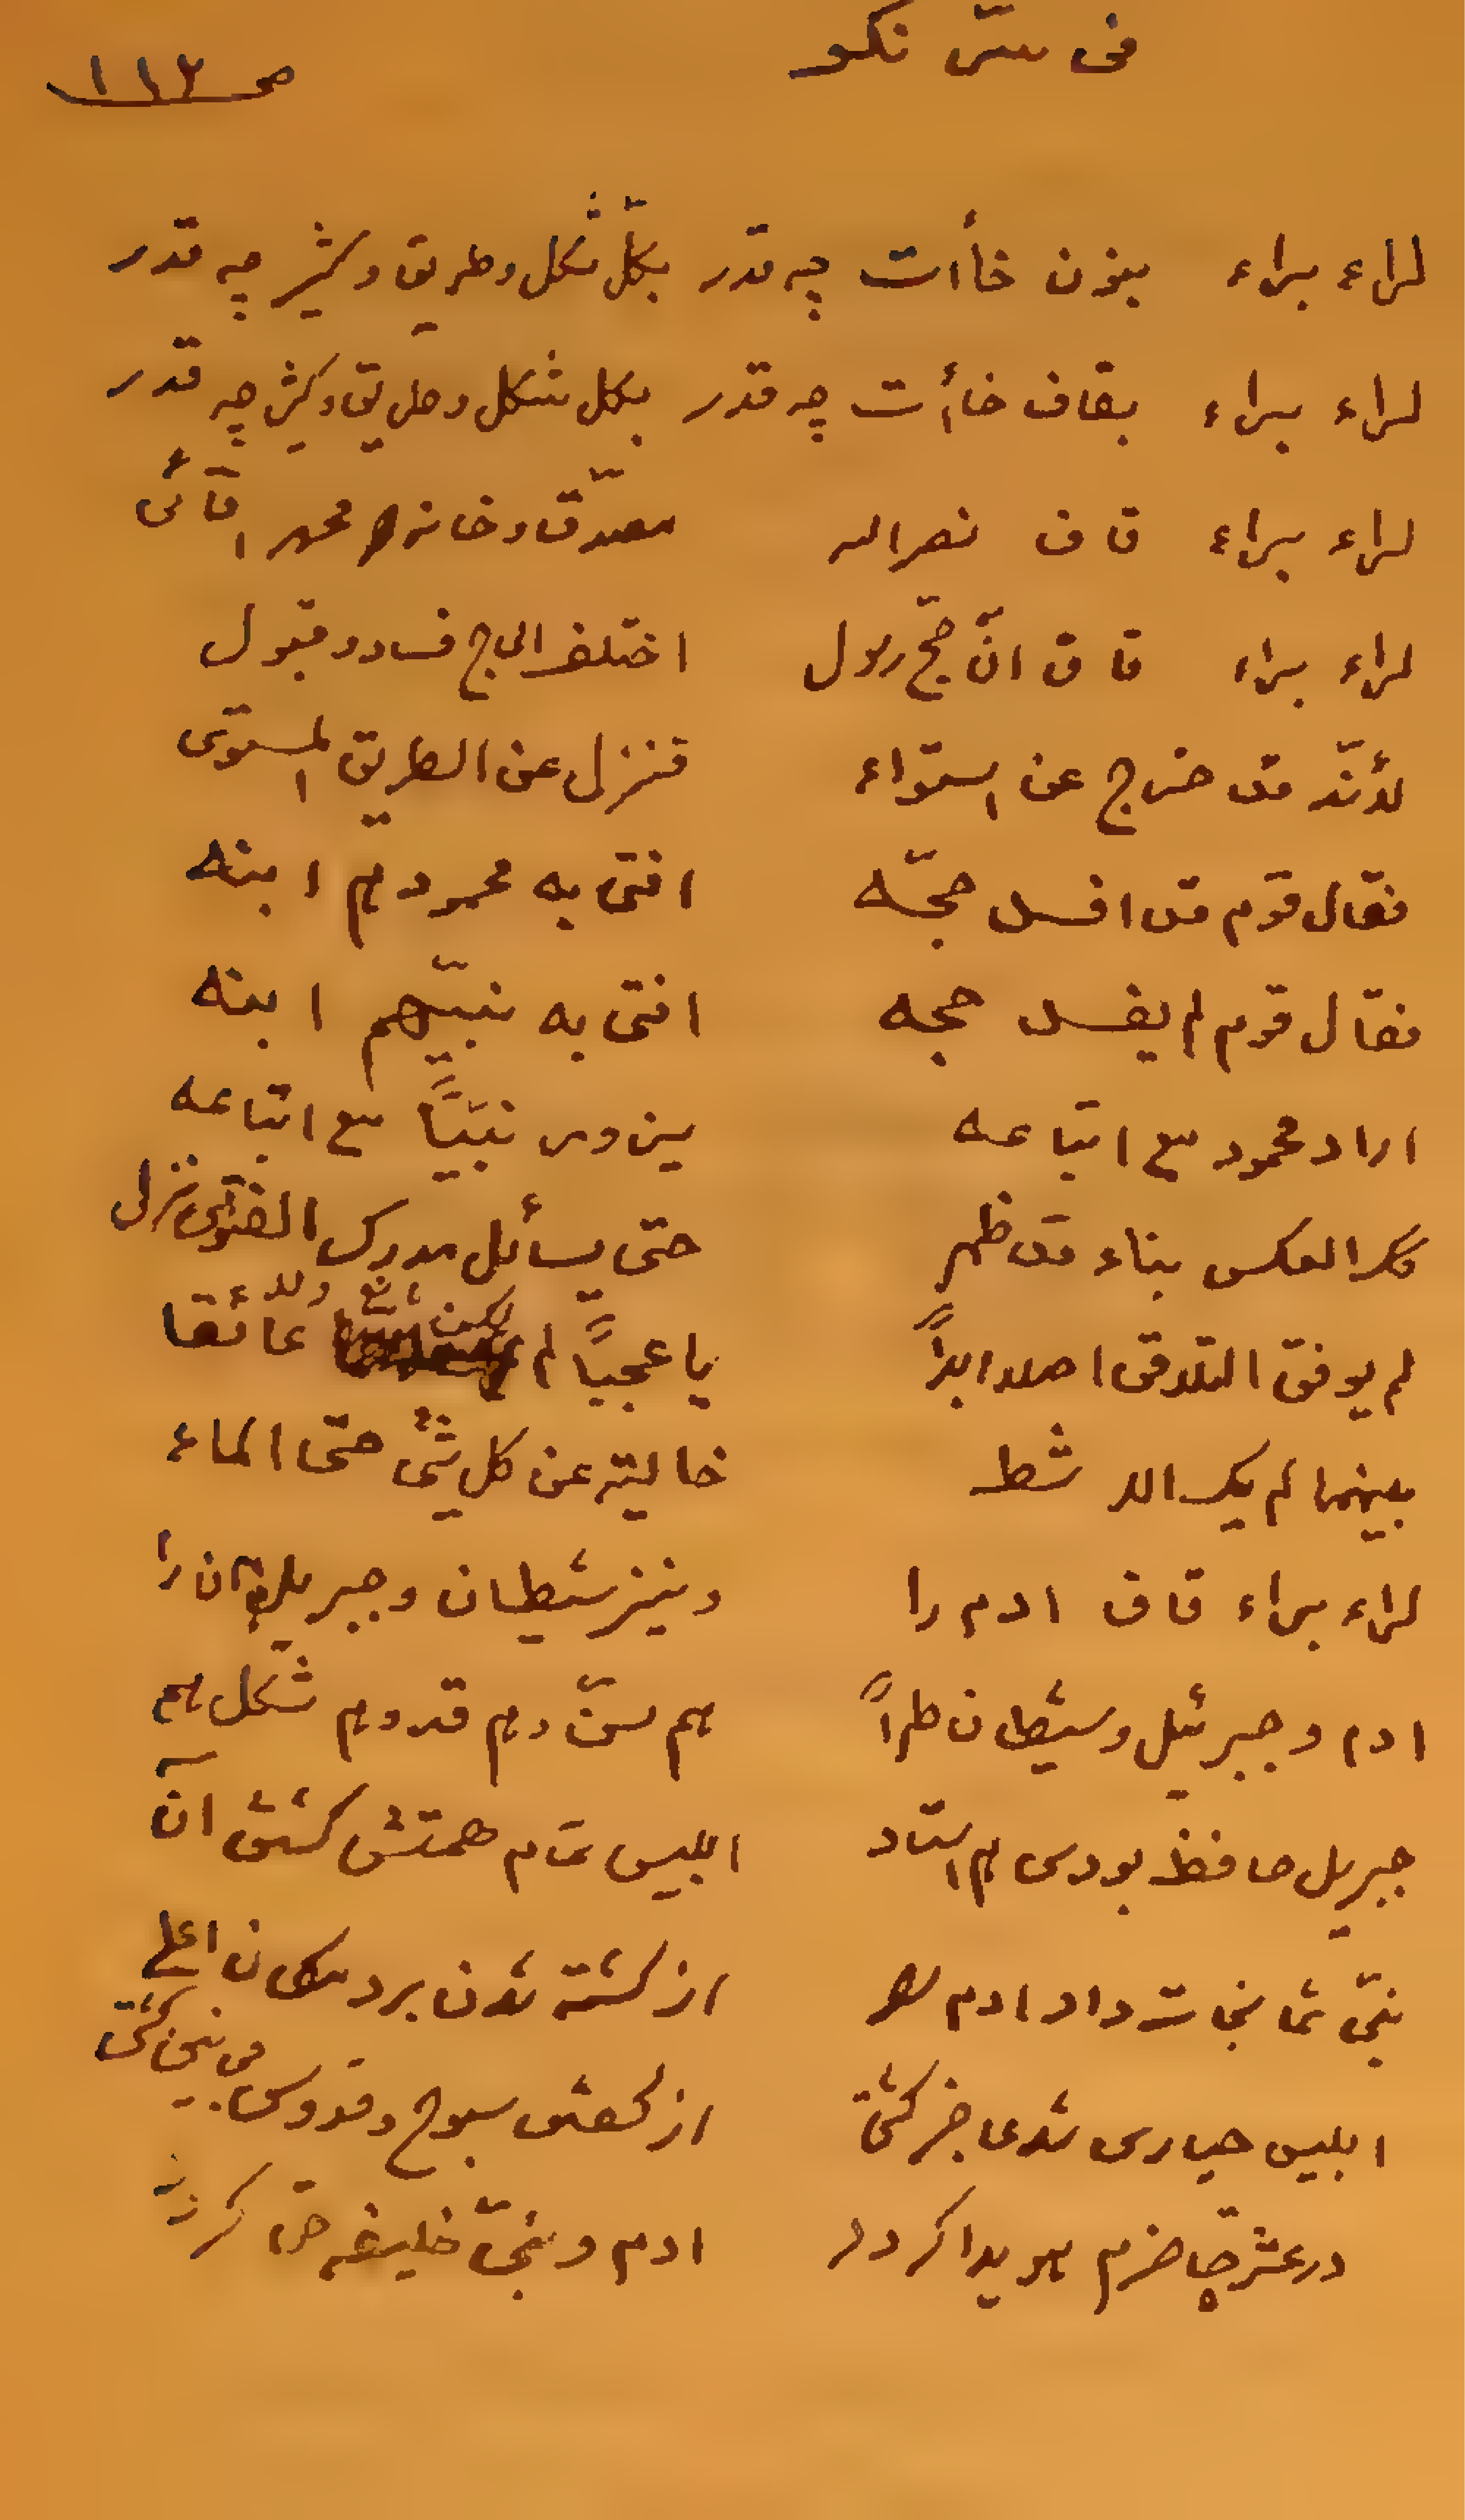 فی سرّ نکو
صـ ١١٢
لراء براء بنون خاأت چه قدر بکلّ شکل و طریق و کثیر چه قدر
لراء براء بقاف خاأت چه قدر بکل شکل و طریق و کثیر چه قدر
لراء براء قاف نصرالله مصدّق و خانرا محمد
لراء براء قاف انّ حجّ رسول اختلف الحاج فساد و قبول
لأنّه قد خرج عن استواء فنزل عن الطریق المستوی
فقال قوم قد افسد حجّه افتی به محمود ثم ابنه
فقال قوم لم یفسد حجه افتی به نبیّهم ابنه
اراد محمود مع اتباعه یزور نبیّاً مع اتباعه
کالعکس بناء قد ظهر حتی یسأل مدرک الفتوی
لم یوفق التلاقی اصلا ابداً یا عجباً لم یکن مانع ولا عائقا
بینهما لم یک الا شط خالیة عن کل شیٔ حتی الماء
لراء براء قاف ادم را و نیز شیطان و جبریل را
ادم و جبرئیل و شیطان طراً هم سنّ و هم قد و هم شکل هم
جبریل حافظ بودی هم استاد ابلیس تمام همتش کشتن آن
نبیّ نجات داد ادم از کشته شدن برد مکان اعلی
ابلیس شدی جز کشتن از سبوح و قدوس
در عشر هویدا کردد ادم و نبیّ خلیفه حق